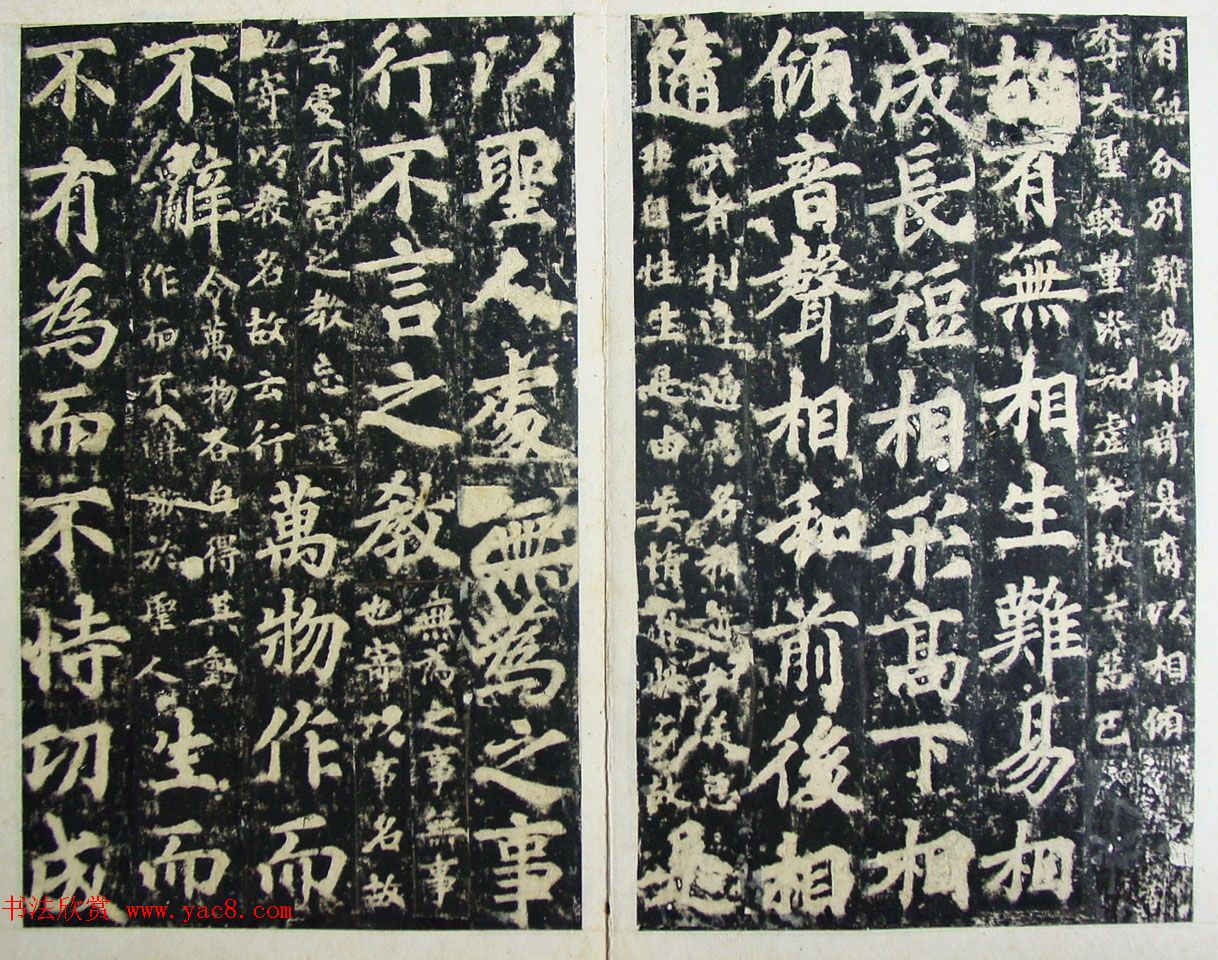 有所分別難易神奇臭腐以相傾
奪大聖較量深知虛妄故云惡已
故有無相生難易相
成長短相形高下相
傾音聲相和前後相
隨
六者相違遞為名稱亦如美惡
非自性生是由妄情有此多故
是
以聖人處無為之事
行不言之教
無為之事無事
也寄以事名故
云處不言之教忘言
也寄以教名故云行
萬物作而
不辭
令萬物各自得其動
作而不辭謝於聖人
生而
不有為而不恃功成
书法欣赏 www.yac8.com